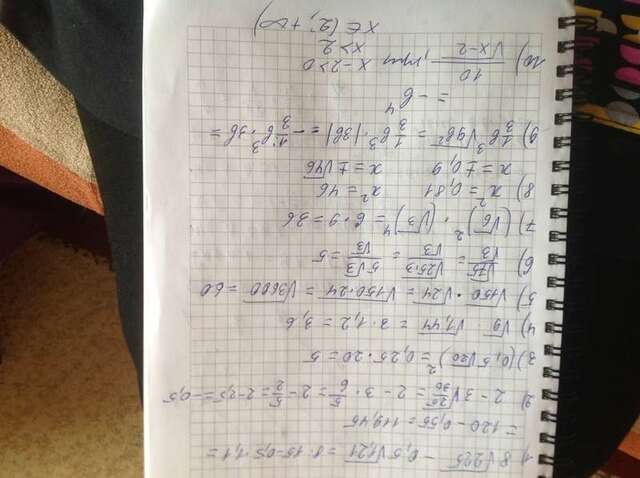 1 8√225 - 0,5√121 = 8·15-0,5·1,1=
= 120 - 0,55 = 119,45
2) 2 - 3√25/36 = 2 - 3 · 5/6 = 2 - 5/2 = 2-2,5 = -0,5
3) (0,5√20)² = 0,25 · 20 = 5
4) √9 · √1,44 = 3 · 1,2 = 3,6
5) √150 · √24 = √150·24 = √3600 = 60
6) √75/√3 = √25·3/√3 = 5√3/√3 = 5
7) (√6)² · (√3)⁴ = 6 · 9 = 36
8) x² = 0,81 x² = 46
x = ± 0,9 x = ±√46
9) 1/3 b³ √9b² = 1/3 b³ · |3b| = - 1/3 b³ · 3b =
= - b⁴
10) 10/√x-2, при x - 2 > 0
x > 2
x ∈ (2; +∞)